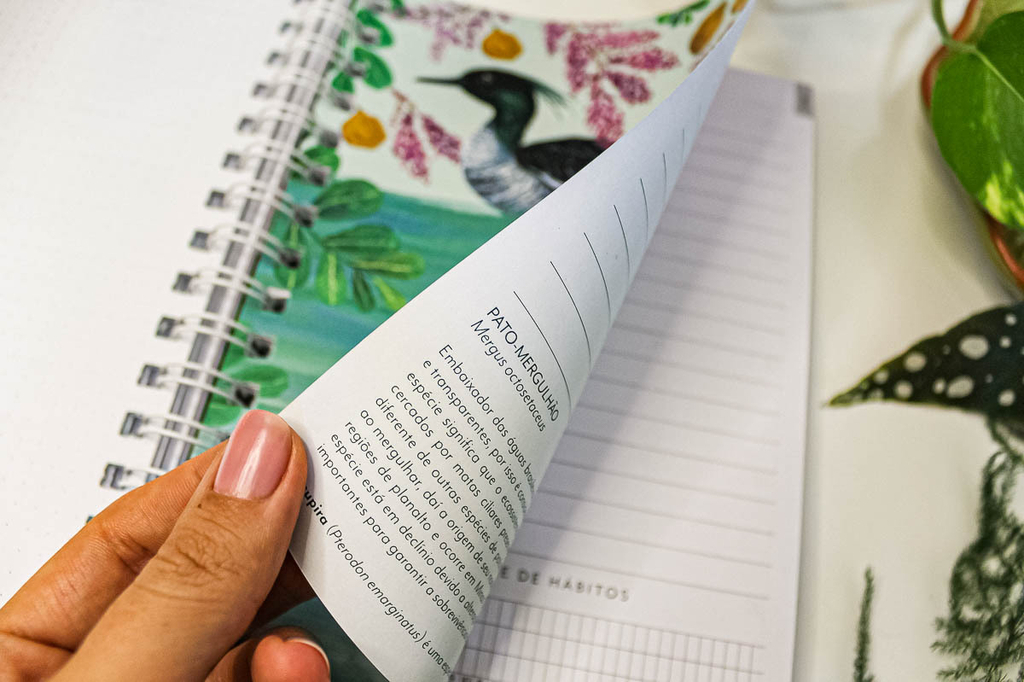 PATO-MERGULHÃO
Mergus octosetaceus
Embaixador das águas
e transparentes, por isso é
espécie significa que o
cercados por matas ciliares
diferente de outras espécies de
ao mergulhar, daí a origem de seu
regiões de planalto e ocorre em
espécie está em declínio devido a
importantes para garantir a
(Pterodon emarginatus) é uma
DE HÁBITOS